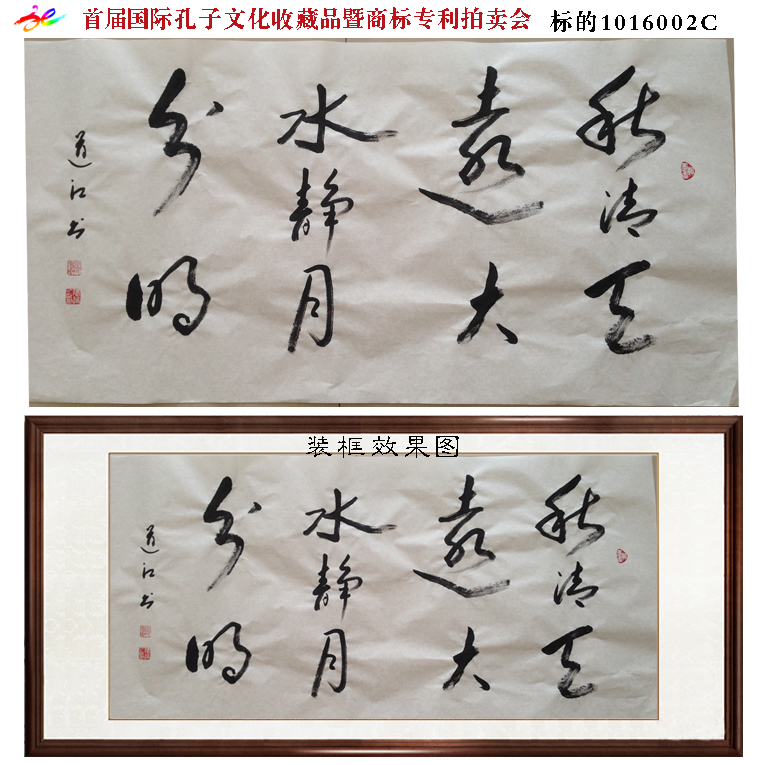 首届国际孔子文化收藏品暨商标专利拍卖会 标的1016002C
秋清天
遠大
水静月
分明
道江书
装框效果图
秋清天
遠大
水静月
分明
道江书